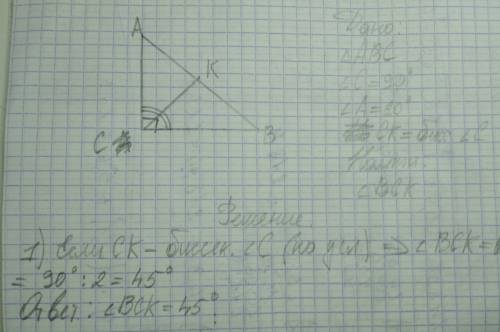 Дано:
△ABC
∠C=90°
CK = бис. ∠C
Найти:
∠BCK
A
K
C
B
Решение.
1) Если CK – биссек. ∠C (по усл) ⇒ ∠BCK =
= 90° : 2 = 45°
Ответ: ∠BCK = 45°.